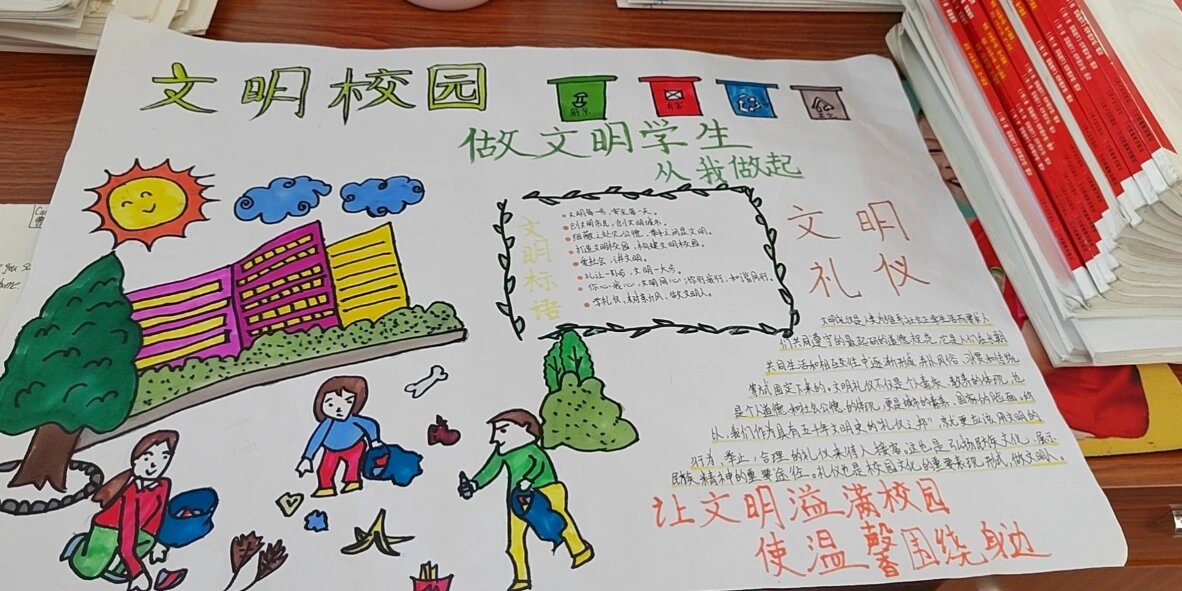 文明校园
做文明学生
从我做起
文明标语
文明每一步,安全每一天。
创文明市民,创文明城市。
细微之处见公德,举手之间显文明。
打造文明校园,构建文明校园。
爱社会,讲文明。
礼让一小步,文明一大步。
你心我心,文明同心;你行我行,和谐同行。
学礼仪,树新风,做文明人。
文明
礼仪
文明礼仪是人类为维系社会正常生活而要求人
们共同遵守的最起码的道德规范,它是人们在长期
共同生活和相互交往中逐渐形成,并以风俗、习惯和传统
等方式固定下来的。文明礼仪不仅是个人素质、教养的体现,也
是个人道德和社会公德的体现,更是城市的素养、国家的脸面。所
以,我们作为具有五千年文明史的"礼仪之邦",就更应该用文明的
行为、举止,合理的礼仪来待人接客。这也是弘扬民族文化、展示
民族精神的重要途径。礼仪也是校园文化的重要表现形式,做文明人。
让文明溢满校园
使温馨围绕身边